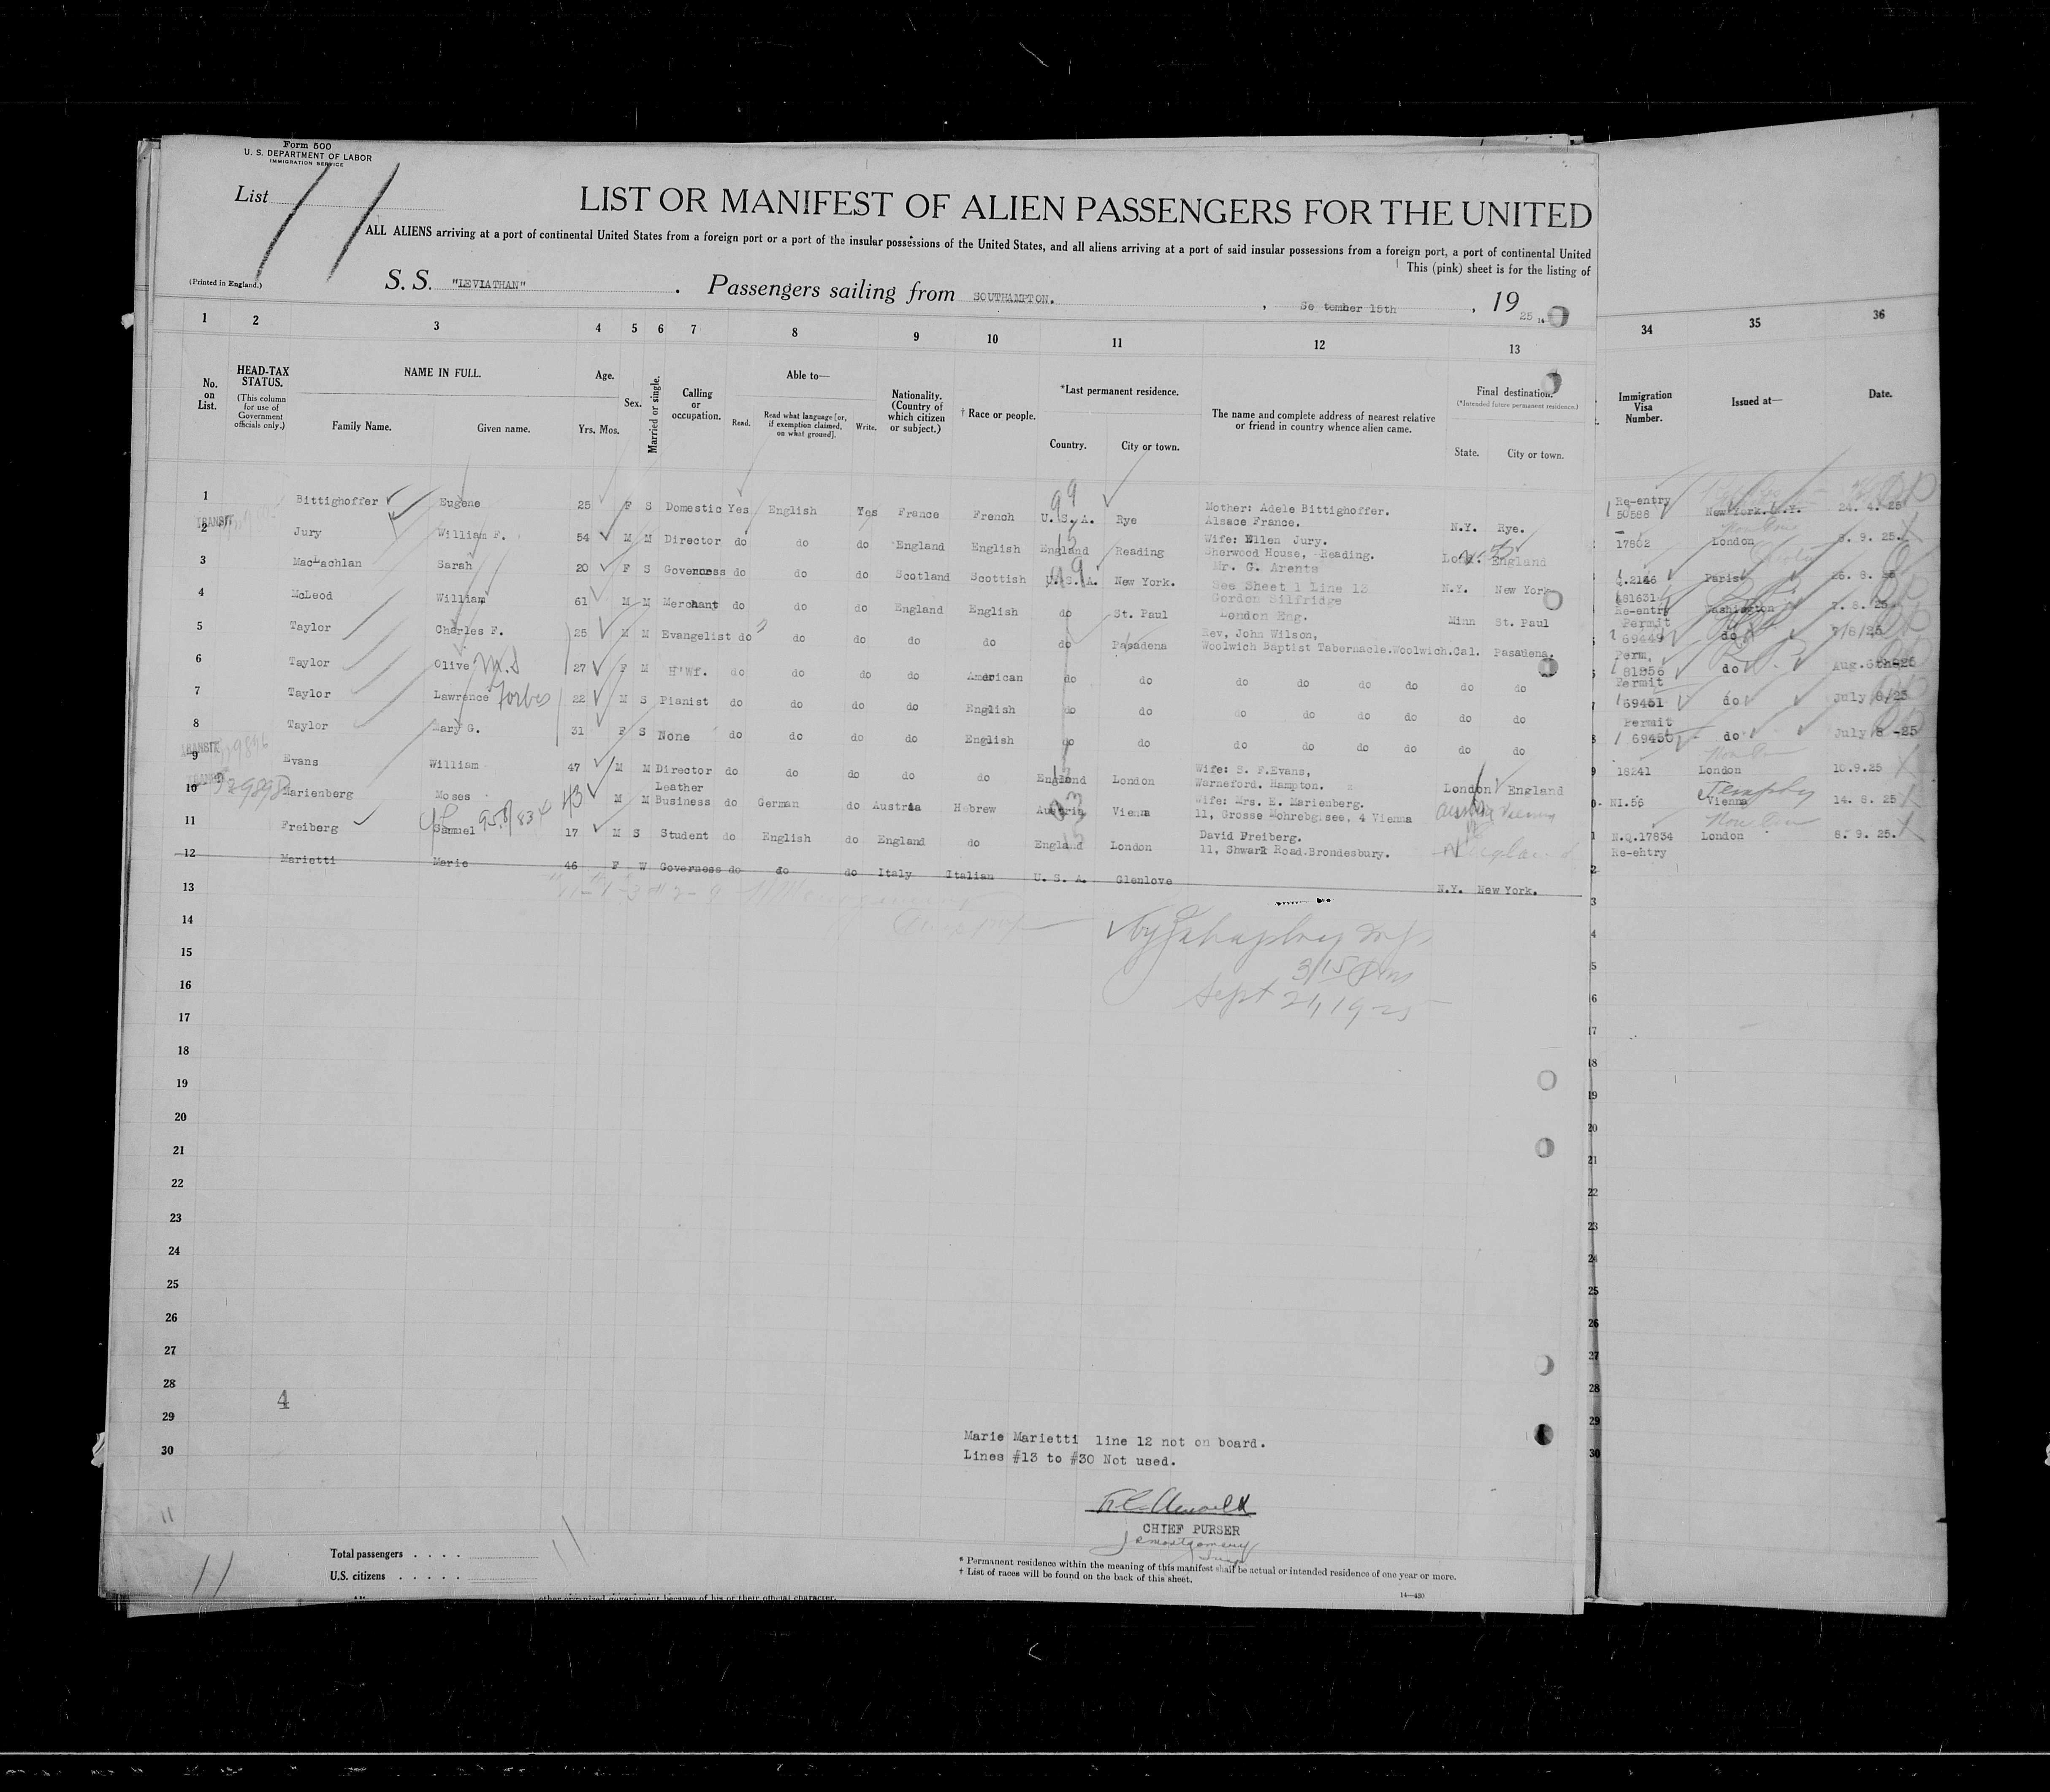 Form 500
U. S. DEPARTMENT OF LABOR
IMMIGRATION SERVICE
List 11
LIST OR MANIFEST OF ALIEN PASSENGERS FOR THE UNITED
ALL ALIENS arriving at a port of continental United States from a foreign port or a port of the insular possessions of the United States, and all aliens arriving at a port of said insular possessions from a foreign port, a port of continental United
This (pink) sheet is for the listing of
(Printed in England.)
S. S. "LEVIATHAN" . Passengers sailing from SOUTHAMPTON. , Se tember 15th , 19 25
1 2 3 4 5 6 7 8 9 10 11 12 13 34 35 36
No. on List.
HEAD-TAX STATUS.
(This column for use of Government officials only.)
NAME IN FULL.
Family Name. Given name.
Age.
Yrs. Mos.
Sex.
Married or single.
Calling or occupation.
Able to—
Read. Read what language [or, if exemption claimed, on what ground]. Write.
Nationality. (Country of which citizen or subject.)
† Race or people.
*Last permanent residence.
Country. City or town.
The name and complete address of nearest relative or friend in country whence alien came.
Final destination.
(*Intended future permanent residence.)
State. City or town.
Immigration Visa Number.
Issued at—
Date.
1 Bittighoffer Eugene 25 F S Domestic Yes English Yes France French U.S.A. Rye Mother: Adele Bittighoffer. Alsace France. N.Y. Rye. Re-entry 50588 New York.N.Y. 24. 4. 25
TRANSIT
2 Jury William F. 54 M M Director do do do England English England Reading Wife: Ellen Jury. Sherwood House, Reading. England 17802 London 8. 9. 25.
3 MacLachlan Sarah 20 F S Governess do do do Scotland Scottish U.S.A. New York. Mr. G. Arents See Sheet 1 Line 13 N.Y. New York 2146 Paris 25. 8. 25
4 McLeod William 61 M M Merchant do do do England English do St. Paul Gordon Silfridge London Eng. Minn St. Paul 181631 Re-entry Permit Washington 7. 8. 25
5 Taylor Charles F. 25 M M Evangelist do do do do do do Pasadena Rev, John Wilson, Woolwich Baptist Tabernacle.Woolwich. Cal. Pasadena. 69449 do 7/8/25
6 Taylor Olive M. S 27 F M H'Wf. do do do do American do do do do do do do do Perm, 81256 do Aug.6th-25
7 Taylor Lawrence Forbes 22 M S Pianist do do do do English do do do do do do do do Permit 69451 do July 8/25
8 Taylor Mary G. 31 F S None do do do do English do do do do do do do do Permit 69450 do July 8 -25
TRANSIT
9 Evans William 47 M M Director do do do do do England London Wife: S. F.Evans, Warneford. Hampton. London England 18241 London 10.9.25
10 Marienberg Moses 43 M M Leather Business do German do Austria Hebrew Austria Vienna Wife: Mrs. E. Marienberg. 11, Grosse Mohrebg.see, 4 Vienna Austria Vienna NI.56 Vienna 14. 8. 25
11 Freiberg Samuel 17 M S Student do English do England do England London David Freiberg. 11, Shwark Road.Brondesbury. England N.Q.17834 London 8. 9. 25.
12 Marietti Marie 46 F W Governess do do do Italy Italian U. S. A. Glenlove N.Y. New York. Re-entry
13
14
3/15 Pm
15
Sept 21, 1925
16
17
18
19
20
21
22
23
24
25
26
27
28
4
29
30
Marie Marietti line 12 not on board.
Lines #13 to #30 Not used.
CHIEF PURSER
11
Total passengers . . . .
U.S. citizens . . . . .
* Permanent residence within the meaning of this manifest shall be actual or intended residence of one year or more.
† List of races will be found on the back of this sheet.
14—430
other organized government because of his or their official character.